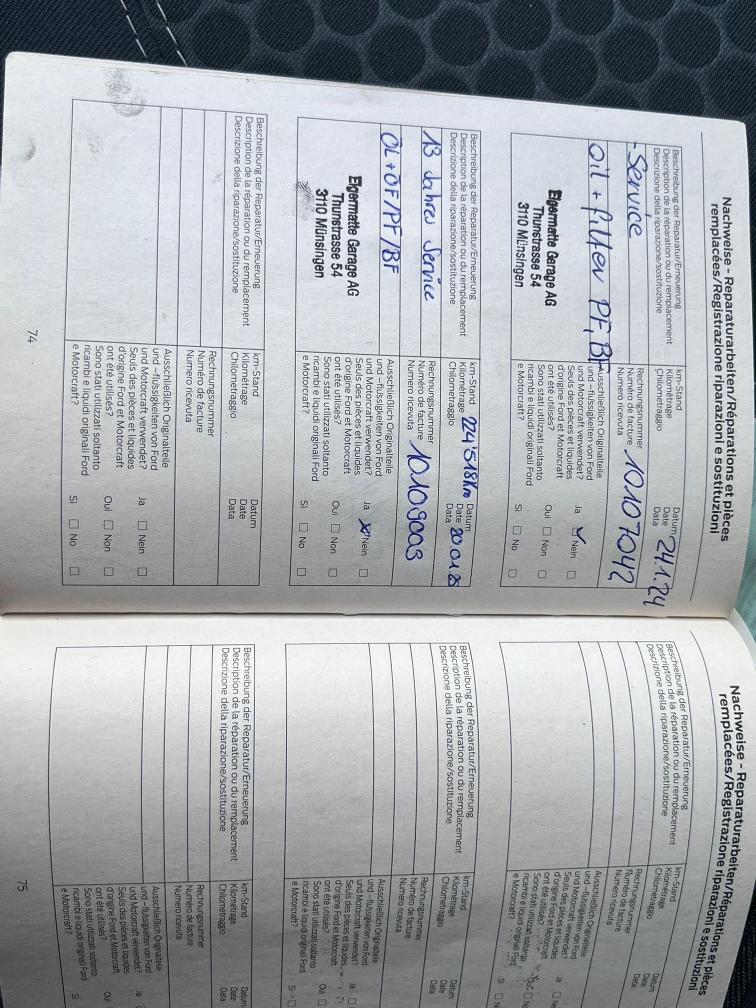 Nachweise - Reparaturarbeiten/Réparations et pièces
remplacées/Registrazione riparazioni e sostituzioni
Beschreibung der Reparatur/Erneuerung
Description de la réparation ou du remplacement
Descrizione della riparazione/sostituzione
km-Stand
Kilométrage
Chilometraggio
Datum
Date
Data
24.1.24
- Service
Rechnungsnummer
Numéro de facture
Numero ricevuta
10107042
Oil + filter PF, BF
Ausschließlich Originalteile
und -flüssigkeiten von Ford
und Motorcraft verwendet?
Seuls des pièces et liquides
d'origine Ford et Motorcraft
ont été utilisés?
Sono stati utilizzati soltanto
ricambi e liquidi originali Ford
e Motorcraft?
Ja Nein
Oui Non
Sì No
Eigermatte Garage AG
Thunstrasse 54
3110 Münsingen
Beschreibung der Reparatur/Erneuerung
Description de la réparation ou du remplacement
Descrizione della riparazione/sostituzione
km-Stand
Kilométrage
Chilometraggio
224'518km
Datum
Date
Data
20.01.25
13 Jahres Service
Rechnungsnummer
Numéro de facture
Numero ricevuta
10109003
ÖL+ÖF/PF/BF
Ausschließlich Originalteile
und -flüssigkeiten von Ford
und Motorcraft verwendet?
Seuls des pièces et liquides
d'origine Ford et Motorcraft
ont été utilisés?
Sono stati utilizzati soltanto
ricambi e liquidi originali Ford
e Motorcraft?
Ja Nein
Oui Non
Sì No
Eigermatte Garage AG
Thunstrasse 54
3110 Münsingen
Beschreibung der Reparatur/Erneuerung
Description de la réparation ou du remplacement
Descrizione della riparazione/sostituzione
km-Stand
Kilométrage
Chilometraggio
Datum
Date
Data
Rechnungsnummer
Numéro de facture
Numero ricevuta
Ausschließlich Originalteile
und -flüssigkeiten von Ford
und Motorcraft verwendet?
Seuls des pièces et liquides
d'origine Ford et Motorcraft
ont été utilisés?
Sono stati utilizzati soltanto
ricambi e liquidi originali Ford
e Motorcraft?
Ja Nein
Oui Non
Sì No
74
Nachweise - Reparaturarbeiten/Réparations et pièces
remplacées/Registrazione riparazioni e sostituzioni
Beschreibung der Reparatur/Erneuerung
Description de la réparation ou du remplacement
Descrizione della riparazione/sostituzione
km-Stand
Kilométrage
Chilometraggio
Datum
Date
Data
Rechnungsnummer
Numéro de facture
Numero ricevuta
Ausschließlich Originalteile
und -flüssigkeiten von Ford
und Motorcraft verwendet?
Seuls des pièces et liquides
d'origine Ford et Motorcraft
ont été utilisés?
Sono stati utilizzati soltanto
ricambi e liquidi originali Ford
e Motorcraft?
Ja
Beschreibung der Reparatur/Erneuerung
Description de la réparation ou du remplacement
Descrizione della riparazione/sostituzione
km-Stand
Kilométrage
Chilometraggio
Datum
Date
Data
Rechnungsnummer
Numéro de facture
Numero ricevuta
Ausschließlich Originalteile
und -flüssigkeiten von Ford
und Motorcraft verwendet?
Seuls des pièces et liquides
d'origine Ford et Motorcraft
ont été utilisés?
Sono stati utilizzati soltanto
ricambi e liquidi originali Ford
e Motorcraft?
Ja
Oui
Sì
Beschreibung der Reparatur/Erneuerung
Description de la réparation ou du remplacement
Descrizione della riparazione/sostituzione
km-Stand
Kilométrage
Chilometraggio
Datum
Date
Data
Rechnungsnummer
Numéro de facture
Numero ricevuta
Ausschließlich Originalteile
und -flüssigkeiten von Ford
und Motorcraft verwendet?
Seuls des pièces et liquides
d'origine Ford et Motorcraft
ont été utilisés?
Sono stati utilizzati soltanto
ricambi e liquidi originali Ford
e Motorcraft?
Ja
Oui
Sì
75